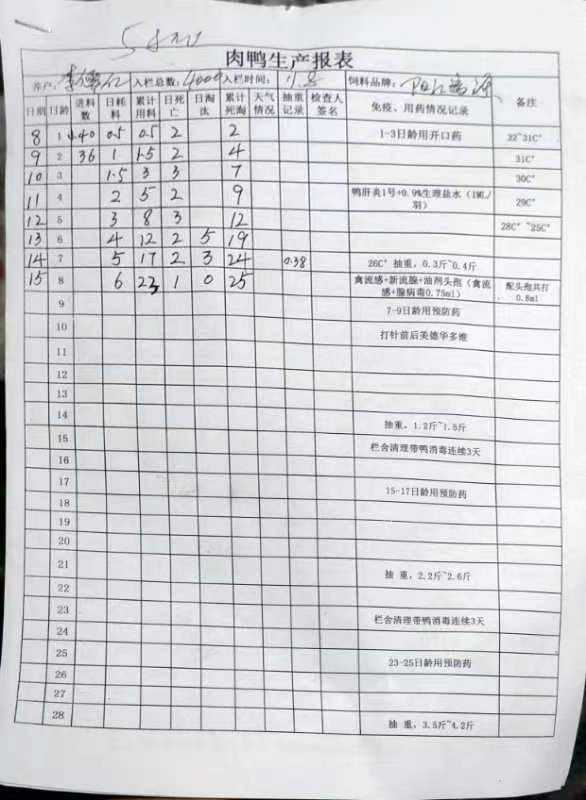 肉鸭生产报表
养户: 入栏总数: 4000 入栏时间: 11.8 饲料品牌:
日期 日龄 进料数 日耗料 累计用料 日死亡 日淘汰 累计死淘 天气情况 抽重记录 检查人签名 免疫、用药情况记录 备注
8 1 440 0.5 0.5 2 2 1-3日龄用开口药 32~31C°
9 2 36 1 1.5 2 4 31C°
10 3 1.5 3 3 7 30C°
11 4 2 5 2 9 鸭肝炎1号+0.9%生理盐水(1ML/羽) 29C°
12 5 3 8 3 12 28C°~25C°
13 6 4 12 2 5 19
14 7 5 17 2 3 24 0.38 26C° 抽重，0.3斤~0.4斤
15 8 6 23 1 0 25 禽流感+新流腺+油剂头孢(禽流感+腺病毒0.75ml) 配头孢共打0.8ml
9 7-9日龄用预防药
10 打针前后美德华多维
11
12
13
14 抽重，1.2斤~1.5斤
15 栏舍清理带鸭消毒连续3天
16
17 15-17日龄用预防药
18
19
20
21 抽 重，2.2斤~2.6斤
22
23 栏舍清理带鸭消毒连续3天
24
25 23-25日龄用预防药
26
27
28 抽 重，3.5斤~4.2斤